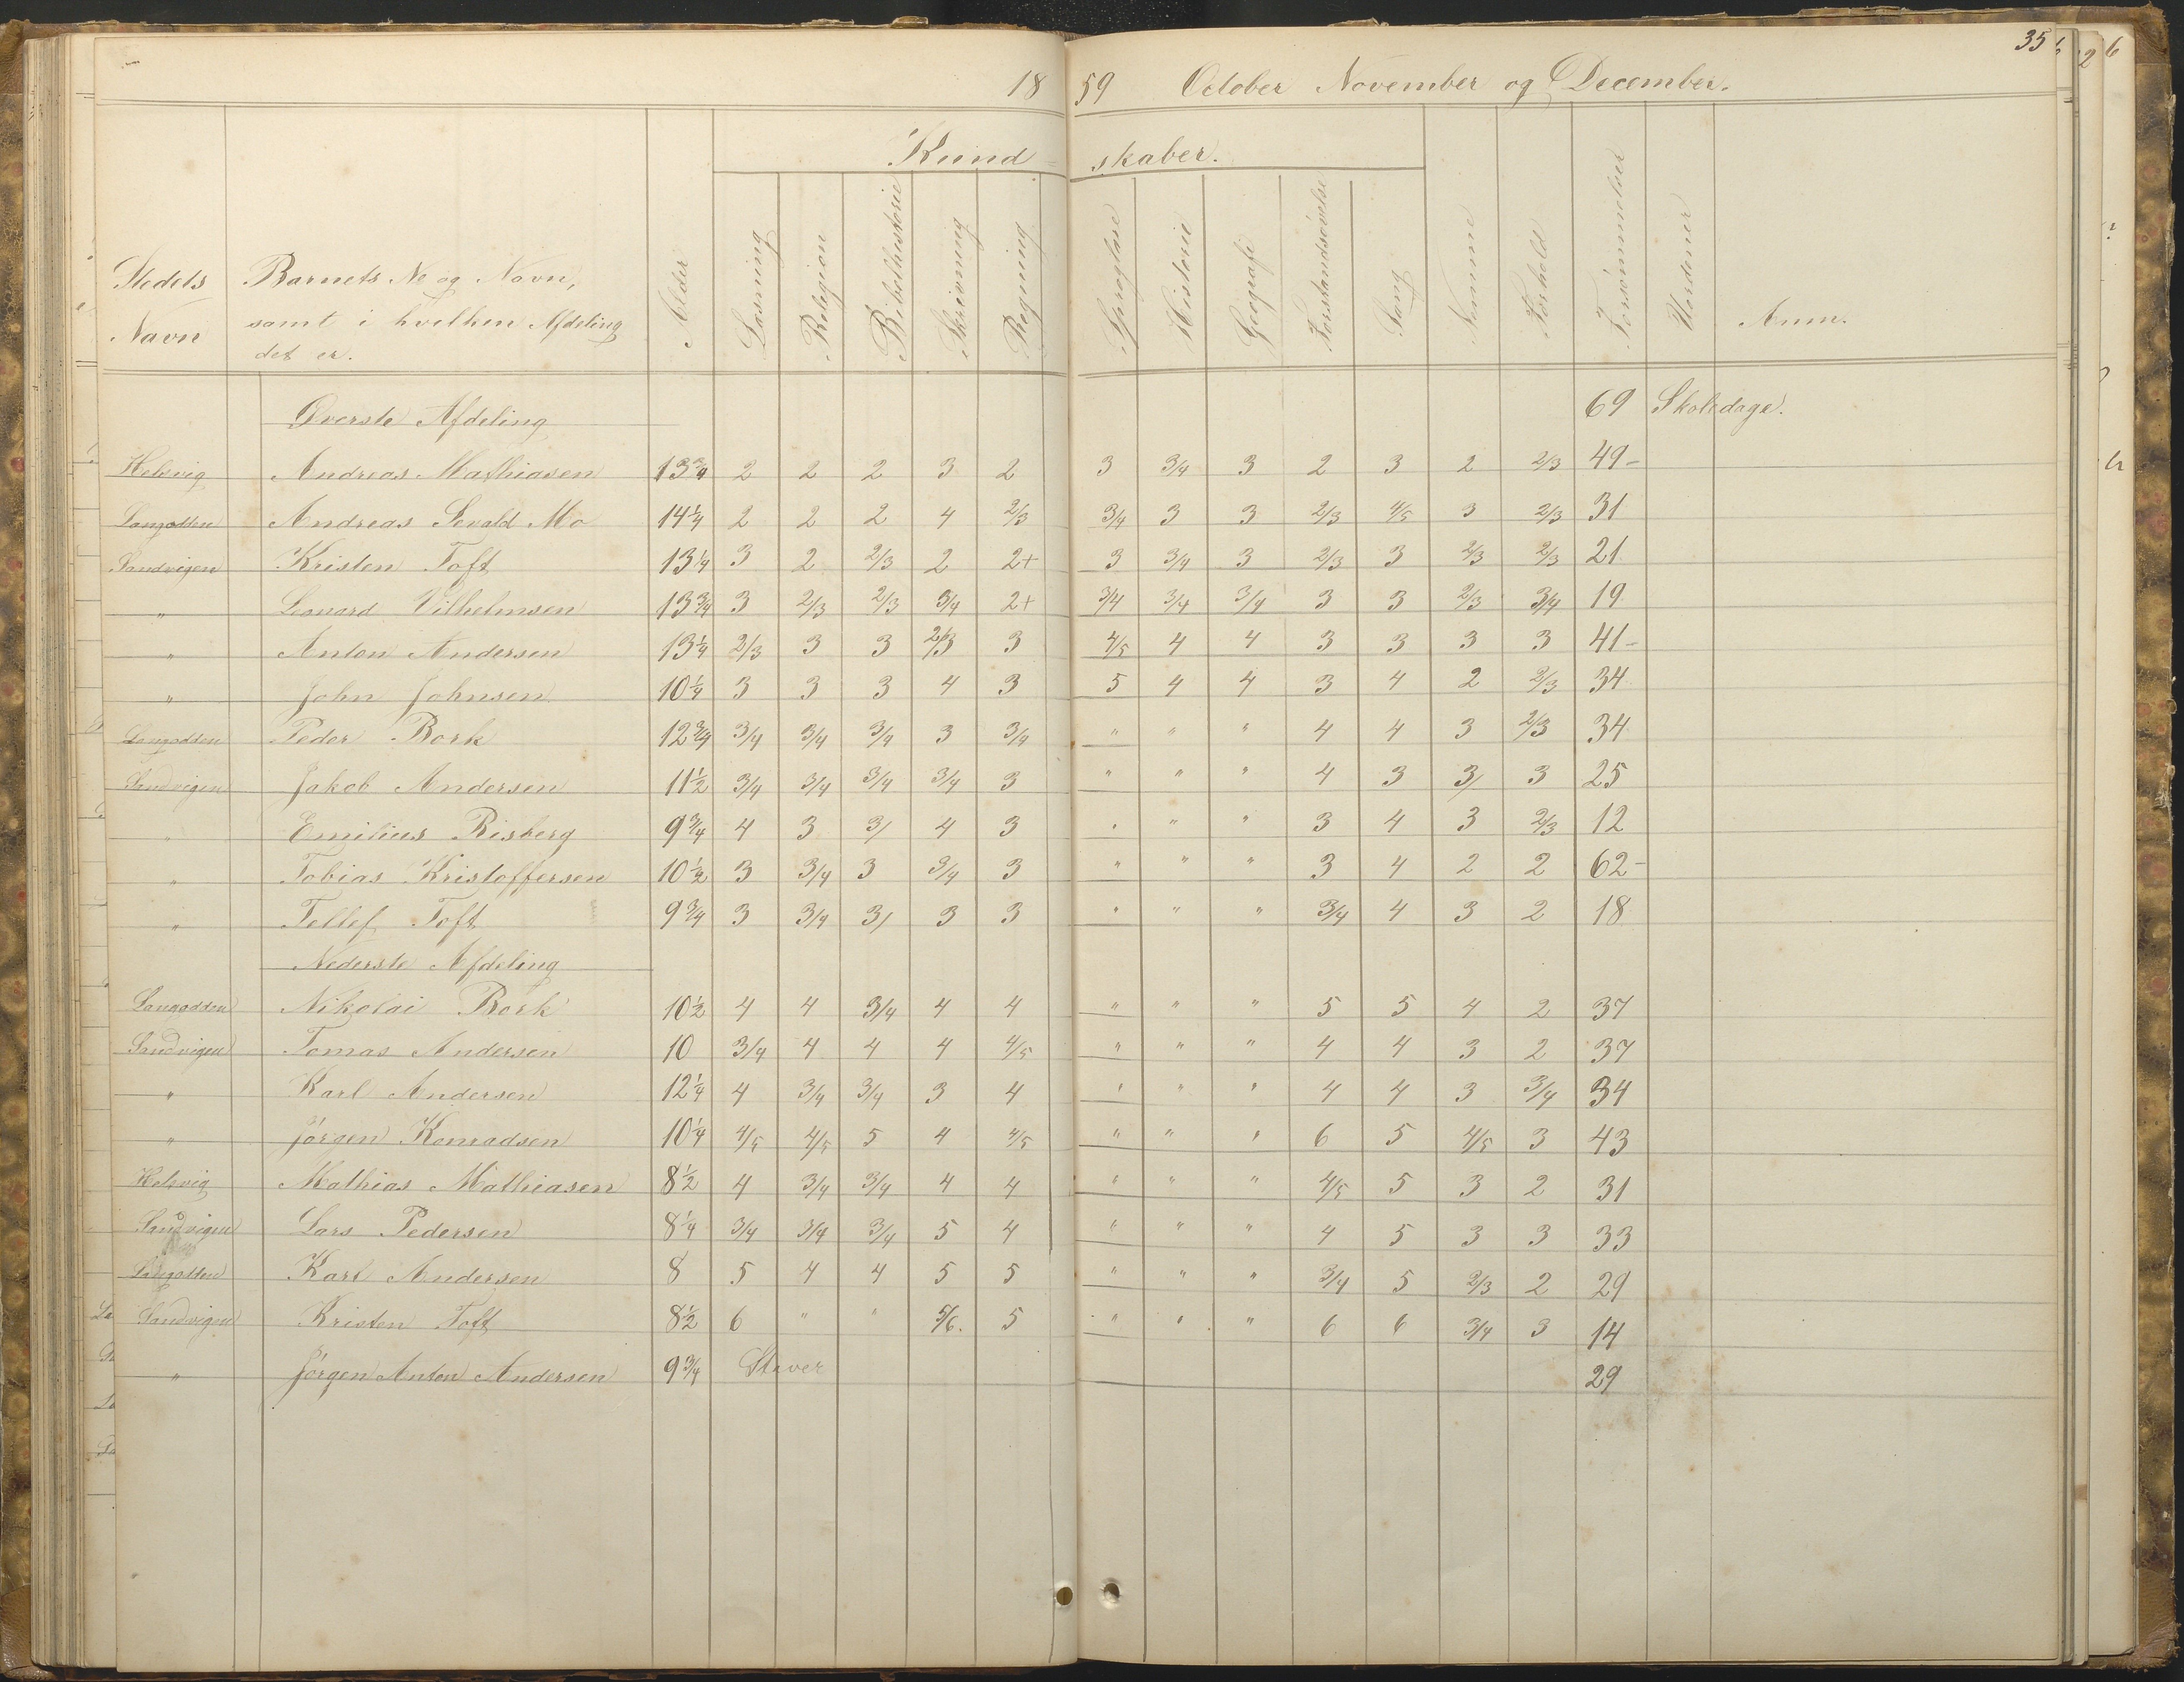 35
1859 October November og December.
Kundskaber.
Stedets Navn
Barnets No og Navn, samt i hvilken Afdeling det er.
Alder
Læsning
Religion
Bibelhistorie
Skrivning
Regning
Sproglære
Historie
Geografi
Forstandsøvelse
Sang
Nemme
Forhold
Forsømmelser
Anm.
Øverste Afdeling 69 Skoledage.
Helsvig Andreas Mathiasen 13¾ 2 2 2 3 2 3 3/4 3 2 3 2 2/3 49-
Langodden Andreas Sevald Mo 14¼ 2 2 2 4 2/3 3/4 3 3 2/3 4/5 3 2/3 31
Sandvigen Kristen Toft 13¼ 3 2 2/3 2 2+ 3 3/4 3 2/3 3 2/3 2/3 21
" Leonard Vilhelmsen 13¾ 3 2/3 2/3 3/4 2+ 3/4 3/4 3/4 3 3 2/3 3/4 19
" Anton Andersen 13¼ 2/3 3 3 2/3 3 4/5 4 4 3 3 3 3 41-
" John Johnsen 10¼ 3 3 3 4 3 5 4 4 3 4 2 2/3 34
Langodden Peder Bork 12¾ 3/4 3/4 3/4 3 3/4 " " " 4 4 3 2/3 34
Sandvigen Jakob Andersen 11½ 3/4 3/4 3/4 3/4 3 " " " 4 3 3/ 3 25
" Emilius Risberg 9¾ 4 3 3/ 4 3 " " " 3 4 3 2/3 12
" Tobias Kristoffersen 10½ 3 3/4 3 3/4 3 " " " 3 4 2 2 62-
" Tellef Toft 9¾ 3 3/4 3/ 3 3 " " " 3/4 4 3 2 18
Nederste Afdeling
Langodden Nikolai Bork 10½ 4 4 3/4 4 4 " " " 5 5 4 2 37
Sandvigen Tomas Andersen 10 3/4 4 4 4 4/5 " " " 4 4 3 2 37
" Karl Andersen 12¼ 4 3/4 3/4 3 4 " " " 4 4 3 3/4 34
" Jørgen Konradsen 10¼ 4/5 4/5 5 4 4/5 " " " 6 5 4/5 3 43
Helsvig Mathias Mathiasen 8½ 4 3/4 3/4 4 4 " " " 4/5 5 3 2 31
Sandvigen Lars Pedersen 8¼ 3/4 3/4 3/4 5 4 " " " 4 5 3 3 33
Langodden Karl Andersen 8 5 4 4 5 5 " " " 3/4 5 2/3 2 29
Sandvigen Kristen Toft 8½ 6 " " 5/6. 5 " " " 6 6 3/4 3 14
" Jørgen Anton Andersen 9¾ Staver 29